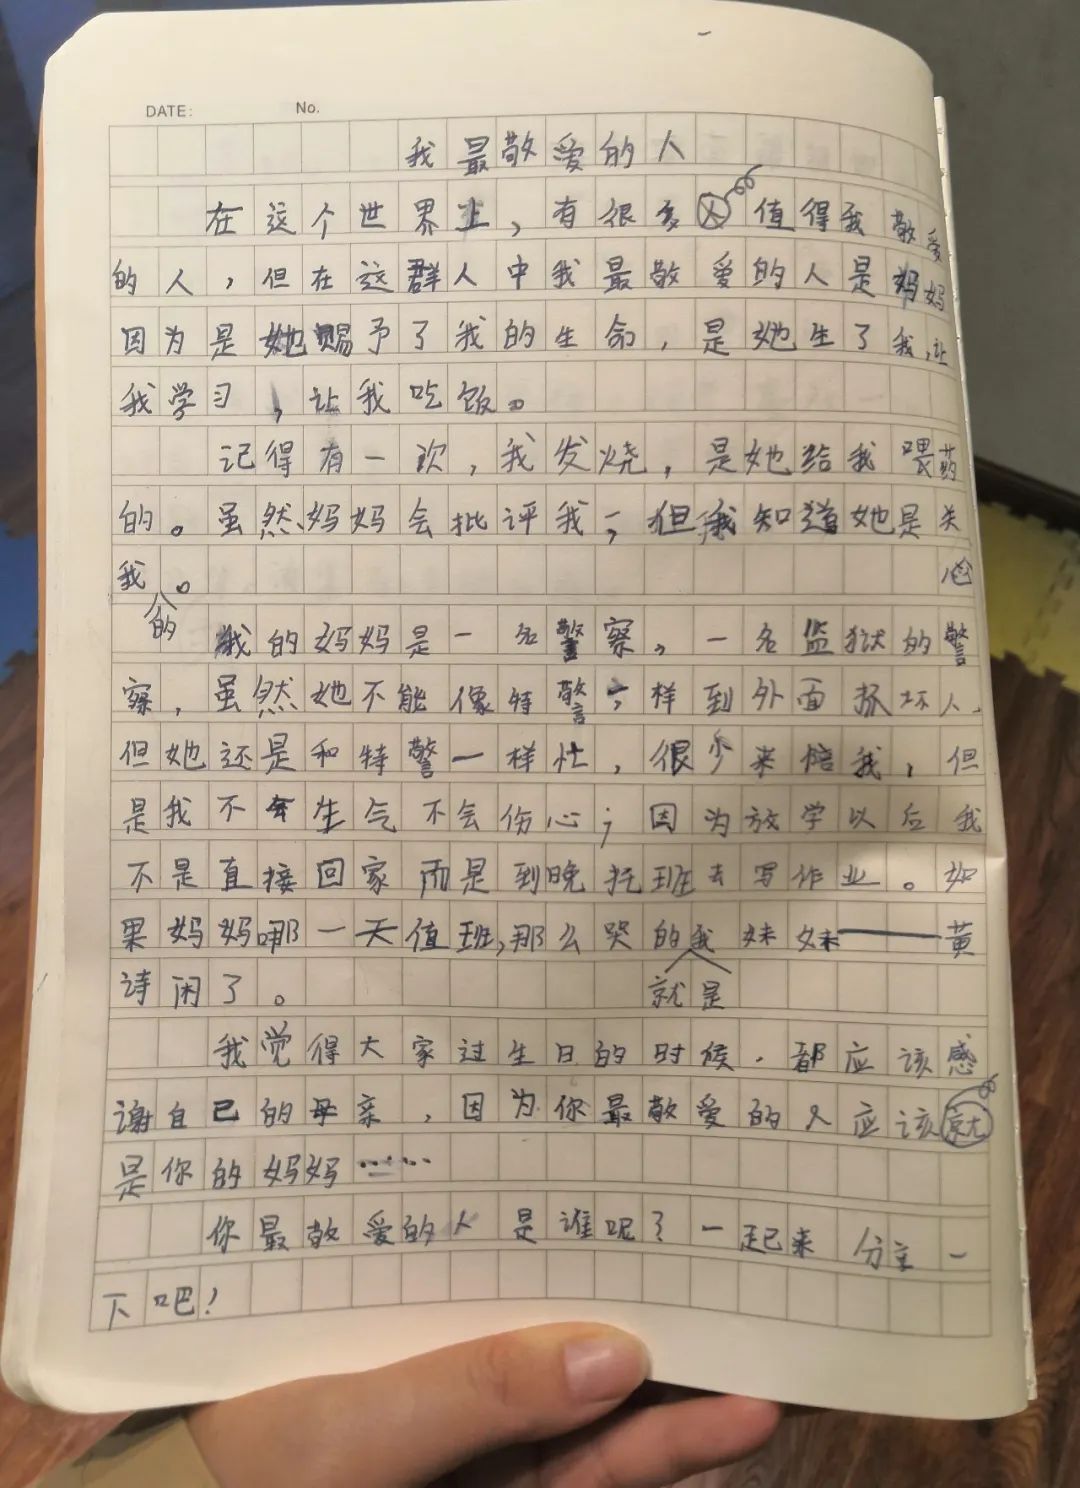 DATE: No.
我最敬爱的人
在这个世界上，有很多人值得我敬爱
的人，但在这群人中我最敬爱的人是妈妈
因为是她赐予了我的生命，是她生了我，让
我学习，让我吃饭。
记得有一次，我发烧，是她给我喂药
的。虽然妈妈会批评我，但我知道她是关心
我的。
我的妈妈是一名警察，一名监狱的警
察，虽然她不能像特警一样到外面抓坏人，
但她还是和特警一样忙，很少来陪我，但
是我不生气不会伤心；因为放学以后我
不是直接回家而是到晚托班去写作业。如
果妈妈哪一天值班，那么哭的就是我妹妹——黄
诗闲了。
我觉得大家过生日的时候，都应该感
谢自己的母亲，因为你最敬爱的人应该就
是你的妈妈……
你最敬爱的人是谁呢？一起来分享一
下吧！